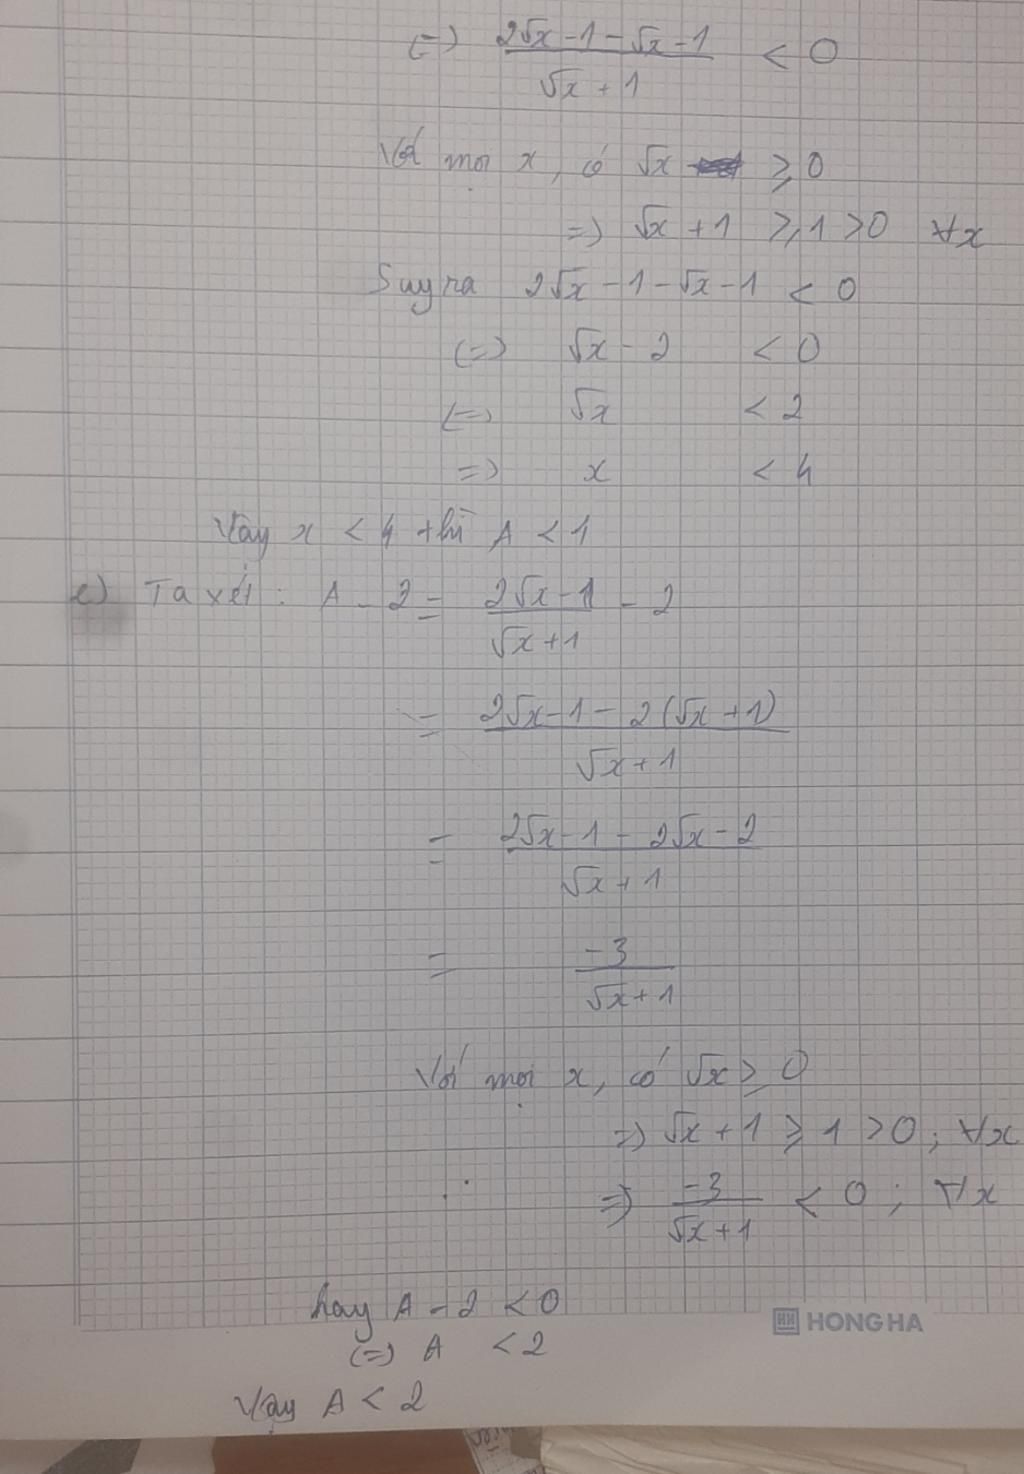 (=) (2√x - 1 - √x - 1)/(√x + 1) < 0
Với mọi x, có √x ≥ 0
=) √x + 1 ≥ 1 > 0 ∀x
Suy ra 2√x - 1 - √x - 1 < 0
(=) √x - 2 < 0
(=) √x < 2
=) x < 4
Vậy x < 4 thì A < 1
e) Ta xét: A - 2 = (2√x - 1)/(√x + 1) - 2
= (2√x - 1 - 2(√x + 1))/(√x + 1)
= (2√x - 1 - 2√x - 2)/(√x + 1)
= (-3)/(√x + 1)
Với mọi x, có √x ≥ 0
=) √x + 1 ≥ 1 > 0 ; ∀x
=) (-3)/(√x + 1) < 0 ; ∀x
hay A - 2 < 0
HONG HA
(=) A < 2
Vậy A < 2